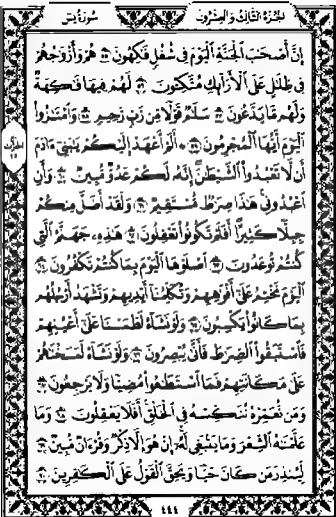 الجزء الثالث والعشرون سورة يس
إن أصحب الجنة اليوم في شغل فكهون ٥٥ هم وأزوجهم
في ظلل على الأرائك متكئون ٥٦ لهم فيها فكهة
ولهم ما يدعون ٥٧ سلم قولا من رب رحيم ٥٨ وامتزوا
اليوم أيها المجرمون ٥٩ ألم أعهد إليكم يبني ءادم
أن لا تعبدوا الشيطن إنه لكم عدو مبين ٦٠ وأن
اعبدوني هذا صرط مستقيم ٦١ ولقد أضل منكم
جبلا كثيرا أفلم تكونوا تعقلون ٦٢ هذه جهنم التي
كنتم توعدون ٦٣ اصلوها اليوم بما كنتم تكفرون ٦٤
اليوم نختم على أفوههم وتكلمنا أيديهم وتشهد أرجلهم
بما كانوا يكسبون ٦٥ ولو نشاء لطمسنا على أعينهم
فاستبقوا الصرط فأنى يبصرون ٦٦ ولو نشاء لمسخنهم
على مكانتهم فما استطعوا مضيا ولا يرجعون ٦٧
ومن نعمره ننكسه في الخلق أفلا يعقلون ٦٨ وما
علمنه الشعر وما ينبغي له إن هو إلا ذكر وقرءان مبين ٦٩
لينذر من كان حيا ويحق القول على الكفرين ٧٠
٤٤٤